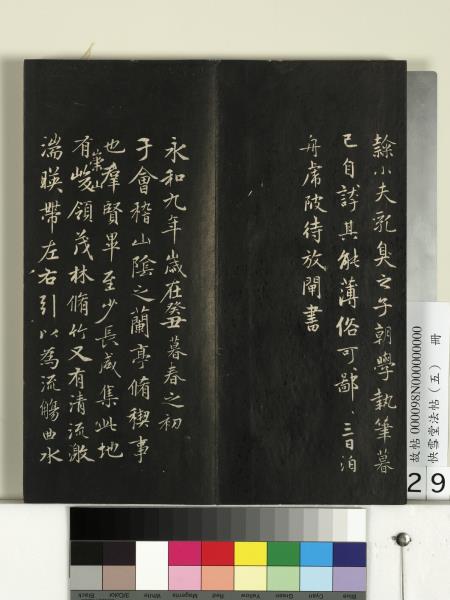 隸小夫乳臭之子朝學執筆暮
已自誇其能薄俗可鄙、三日泊
舟虎陂待放閘書
永和九年歲在癸丑暮春之初
于會稽山陰之蘭亭脩禊事
也羣賢畢至少長咸集此地
有崇山峻領茂林脩竹又有清流激
湍暎帶左右引以為流觴曲水
故帖 000098N000000000000
快雪堂法帖(五) 冊
29
Black
3/Color
White
Magenta
Red
Yellow
Green
Cyan
Blue